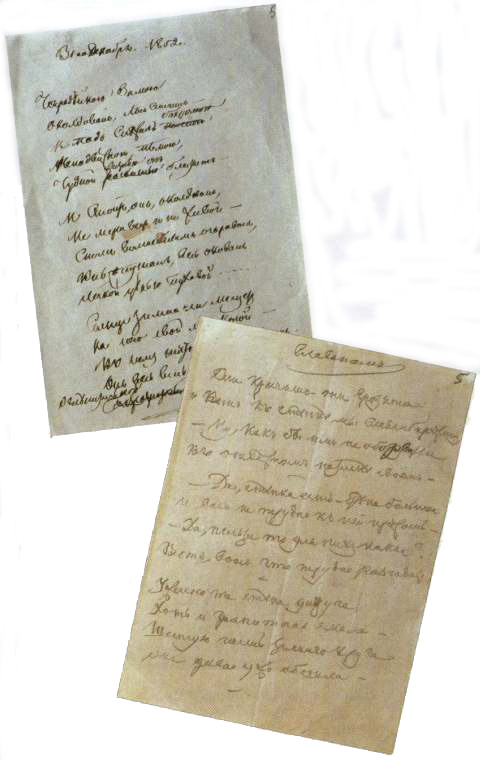 Декабрь. 1852.
5
Чародѣйкою Зимою
Околдованъ, лѣсъ стоитъ
И подъ снѣжной бахромою
Неподвижною, нѣмою,
Чудной жизнью онъ блеститъ —
И стоитъ онъ, околдованъ,
Не мертвецъ и не живой —
Сномъ волшебнымъ очарованъ,
Весь опутанъ, весь окованъ
Легкой цѣпью пуховой .....
Солнце зимнее ли мещетъ
На него свой лучъ косой —
Въ немъ ничто
Онъ весь
Славянамъ
5
Они кричатъ они грозятся
"Вотъ къ стѣнкѣ мы Славянъ прижмемъ
— Ну, какъ бы имъ не оборваться
Въ задорномъ натискѣ своемъ —
— Да, стѣнка есть — стѣна большая
И васъ не трудно къ ней прижать —
— Да, польза то для нихъ какая?
Вотъ, вотъ что трудно разгадать
Ужасно та стѣна упруга
Хоть и гранитная скала —
Шестую часть земнаго круга
Она давно ужъ обошла —